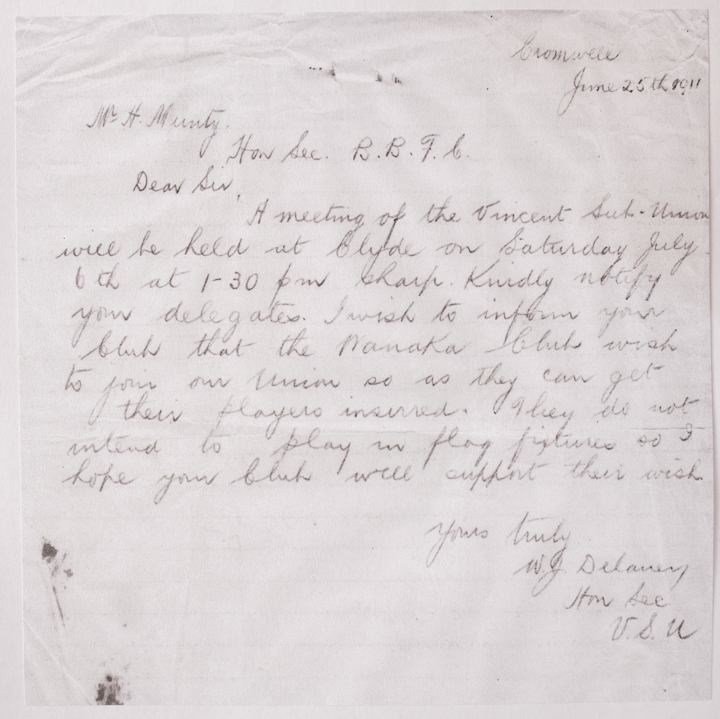 Cromwell
June 25th 1911
Mr H. Munty.
Hon Sec. B. B. F. C.
Dear Sir,
A meeting of the Vincent Sub-Union
will be held at Clyde on Saturday July
6th at 1-30 pm sharp. Kindly notify
your delegates. I wish to inform your
Club that the Wanaka Club wish
to join our Union so as they can get
their players insured. They do not
intend to play in flag fixtures so I
hope your Club will support their wish
Yours truly
W.J. Delaney
Hon Sec
V. S. U